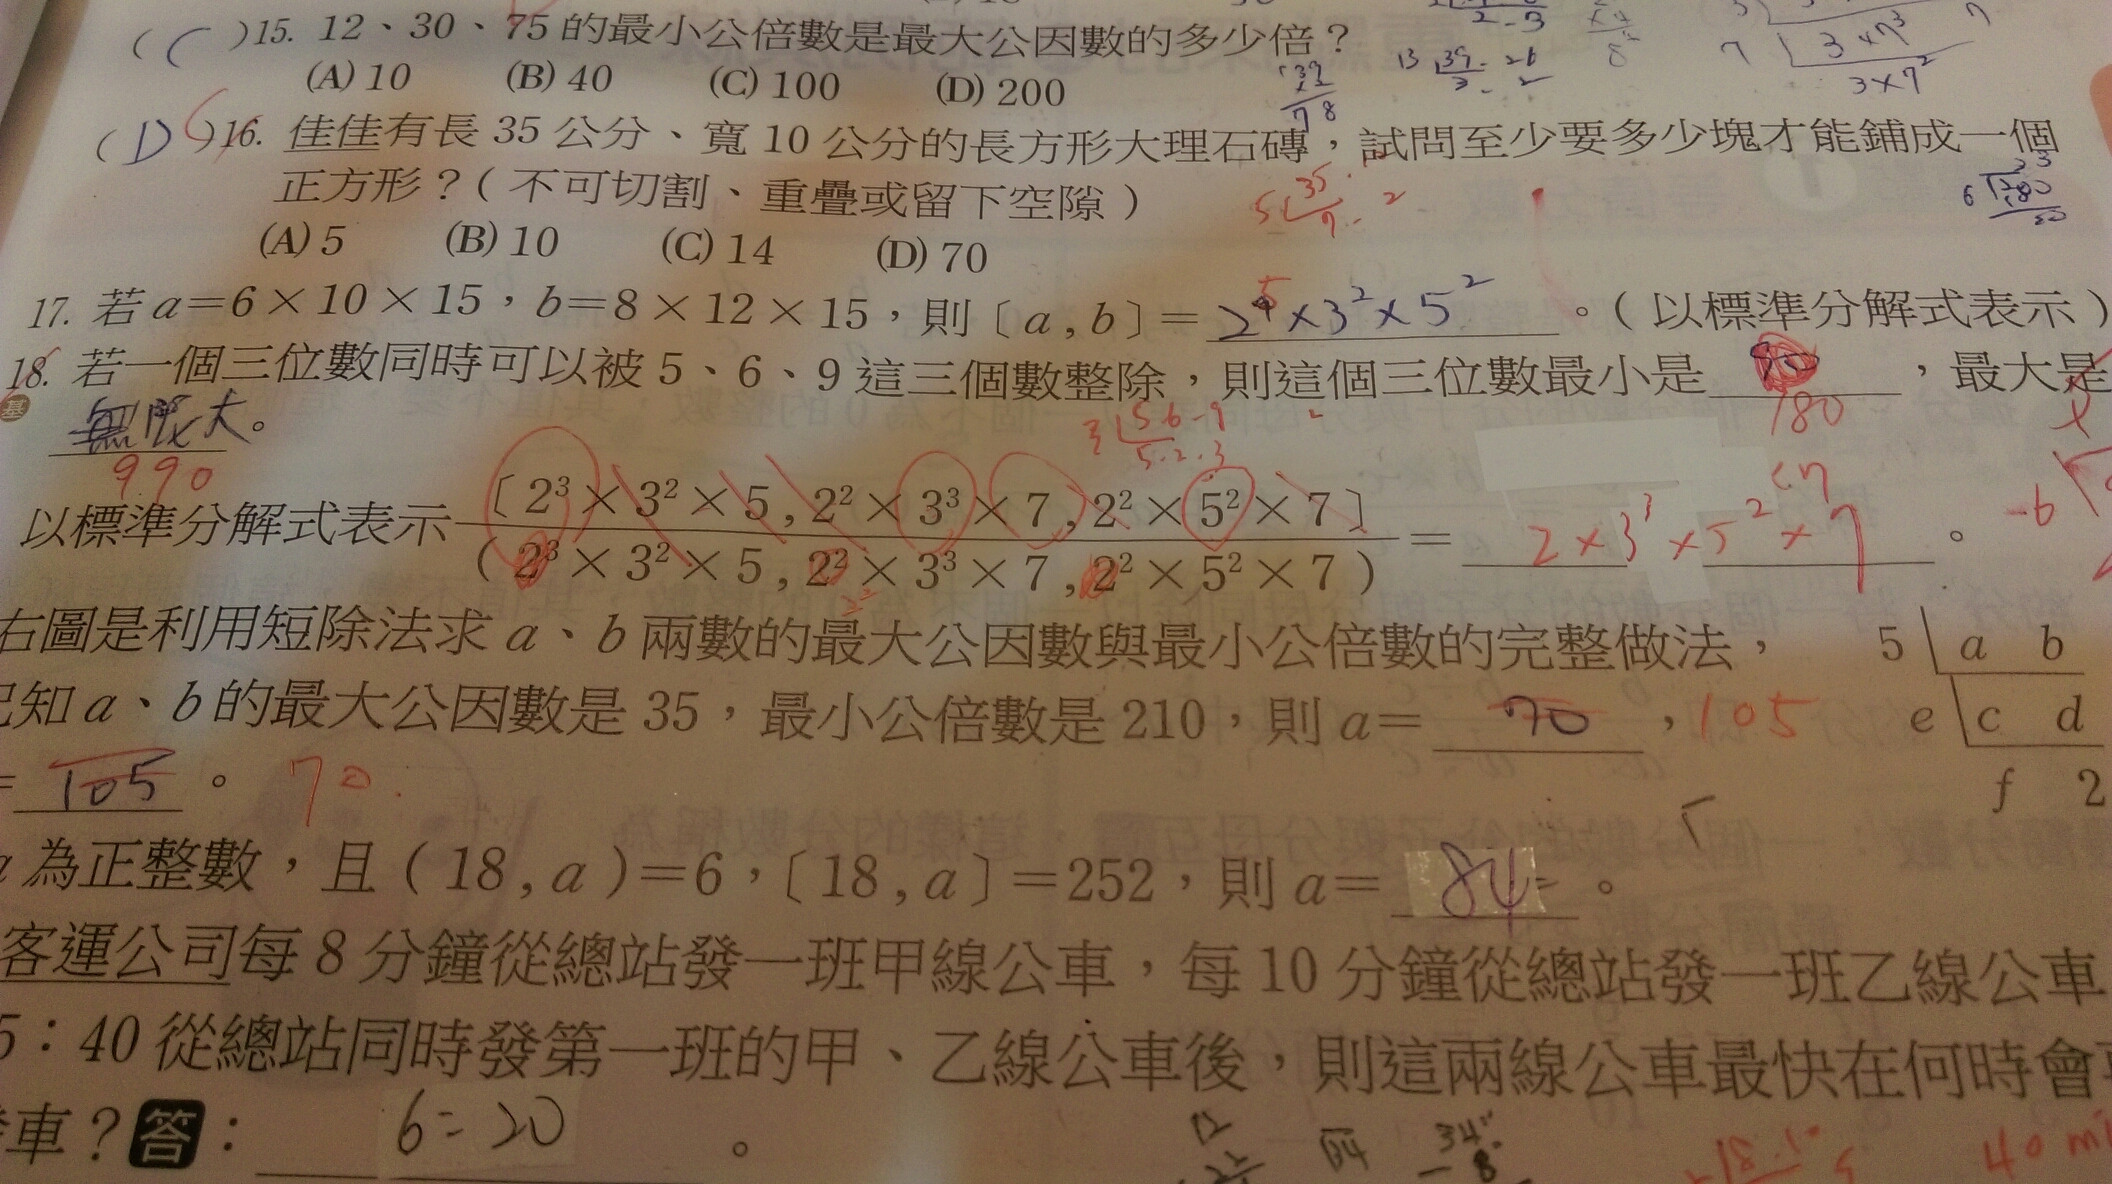 ( C )15. 12、30、75 的最小公倍數是最大公因數的多少倍？
(A) 10 (B) 40 (C) 100 (D) 200
( D )16. 佳佳有長 35 公分、寬 10 公分的長方形大理石磚，試問至少要多少塊才能鋪成一個
正方形？( 不可切割、重疊或留下空隙 )
(A) 5 (B) 10 (C) 14 (D) 70
17. 若 a＝6×10×15，b＝8×12×15，則〔a , b〕＝ 2⁵×3²×5² 。( 以標準分解式表示 )
18. 若一個三位數同時可以被 5、6、9 這三個數整除，則這個三位數最小是 180 ，最大是
無限大。
990
以標準分解式表示 〔2³×3²×5 , 2²×3³×7 , 2²×5²×7〕/( 2³×3²×5 , 2²×3³×7 , 2²×5²×7 ) ＝ 2×3³×5²×7 。
右圖是利用短除法求 a、b 兩數的最大公因數與最小公倍數的完整做法， 5 a b
知 a、b 的最大公因數是 35，最小公倍數是 210，則 a＝ 70 ，105 e c d
＝ 105 。 70 f 2
a 為正整數，且 ( 18 , a )＝6，〔18 , a〕＝252，則 a＝ 84 。
客運公司每 8 分鐘從總站發一班甲線公車，每 10 分鐘從總站發一班乙線公車
5：40 從總站同時發第一班的甲、乙線公車後，則這兩線公車最快在何時會
車？答： 6:20 。